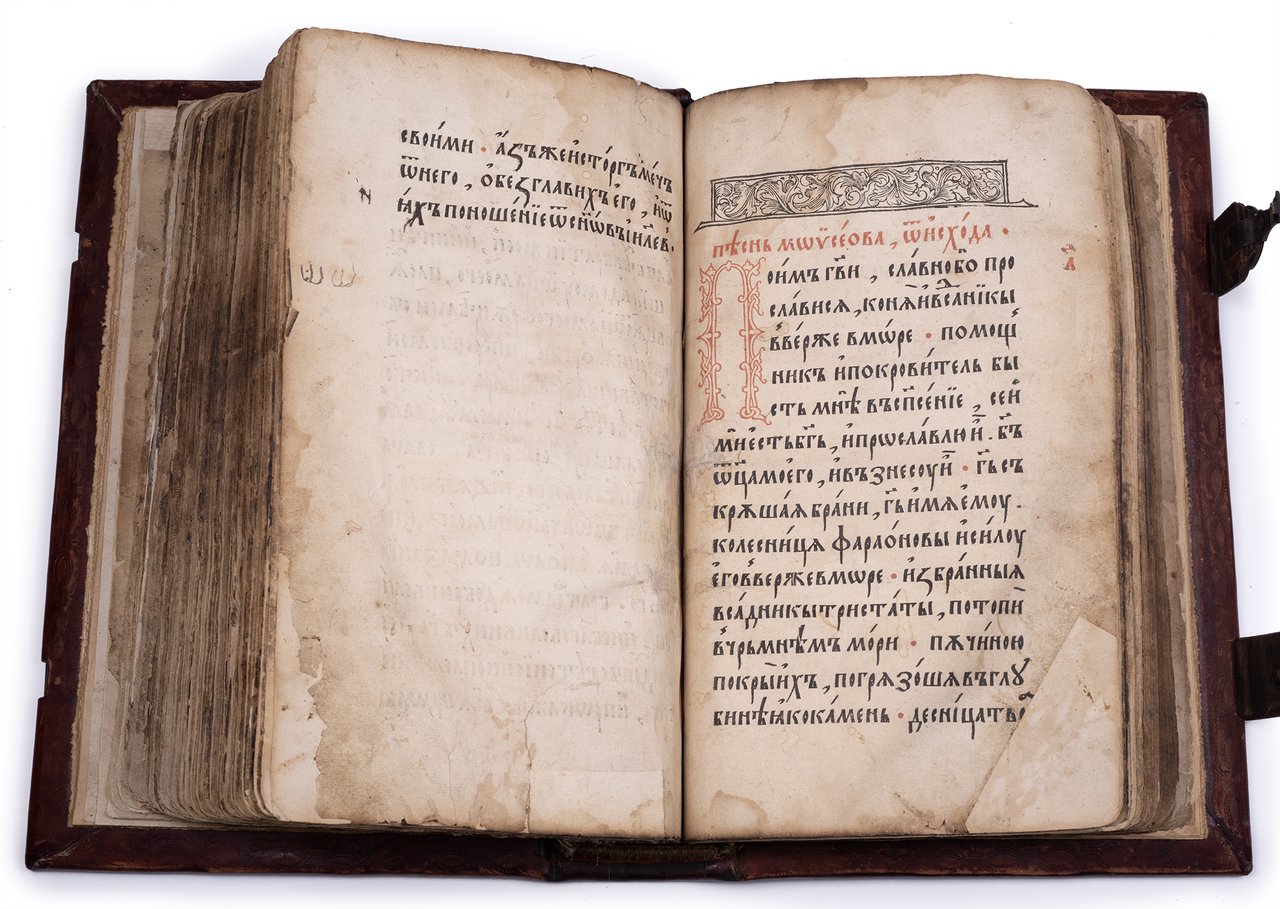 свои́ми · а҆́зъ же и҆сто́ргъ ме́чь
ѿ него̀, ѻ҆безглавихъ е҆го̀, и҆ ѿ
ꙗ҆́хъ поноше́нїе ѿ сн҃ѡ́въ і҆и҃лев.
пѣ́снь мѡѷсе́ова, ѿ и҆схо́да ·
а҃
Пои́мъ гв҃и, сла́вно бо про
сла́вися, коня̀ и҆ вса́дникы
въве́рже в мѡ́ре · помощ
никъ и҆ покрови́тель бы
сть мнѣ̀ въ сп҃се́нїе, сей
мѝ є҆сть бг҃ъ, и҆ прѡсла́влю и҆̀ . бг҃ъ
ѿца̀ моего̀, и҆ възнесоу и҆̀ · гь҃ съ
крѫша́ѧ бра́ни, гь҃ и҆мя є҆моу .
колесни́ця фараѻ́новы и҆ си́лоу
є҆го̀ вверже в мѡре · и҆збра́нныѧ
вса́дникы триста́ты, потопѝ
в чрьмнѣ́мъ мо́ри · пѫчи́ною
покры̀ и҆́хъ, погрязо́шѧ въ глꙋ
бинѣ̀ ꙗ҆ко ка́мень · десни́ца тво